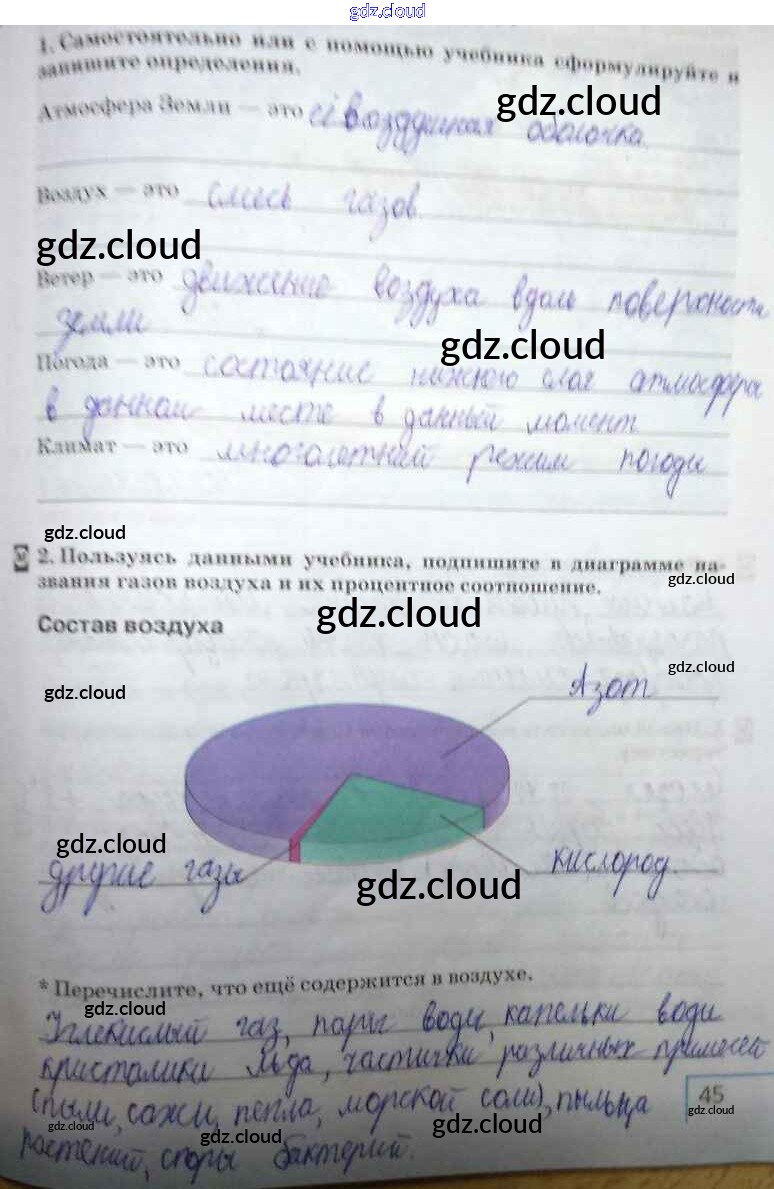 gdz.cloud
1. Самостоятельно или с помощью учебника сформулируйте и
запишите определения.
gdz.cloud
Атмосфера Земли — это её воздушная оболочка.
Воздух — это смесь газов.
gdz.cloud
Ветер — это движение воздуха вдоль поверхности
земли
gdz.cloud
Погода — это состояние нижнего слоя атмосферы
в данном месте в данный момент
Климат — это многолетний режим погоды
gdz.cloud
2. Пользуясь данными учебника, подпишите в диаграмме на-
звания газов воздуха и их процентное соотношение.
gdz.cloud
gdz.cloud
Состав воздуха
gdz.cloud
gdz.cloud
Азот
gdz.cloud
другие газы
кислород.
gdz.cloud
* Перечислите, что ещё содержится в воздухе.
gdz.cloud
Углекислый газ, пары воды, капельки воды
кристаллики льда, частички различных примесей
(пыли, сажи, пепла, морской соли), пыльца
45
gdz.cloud
gdz.cloud
gdz.cloud
gdz.cloud
растений, споры бактерий.